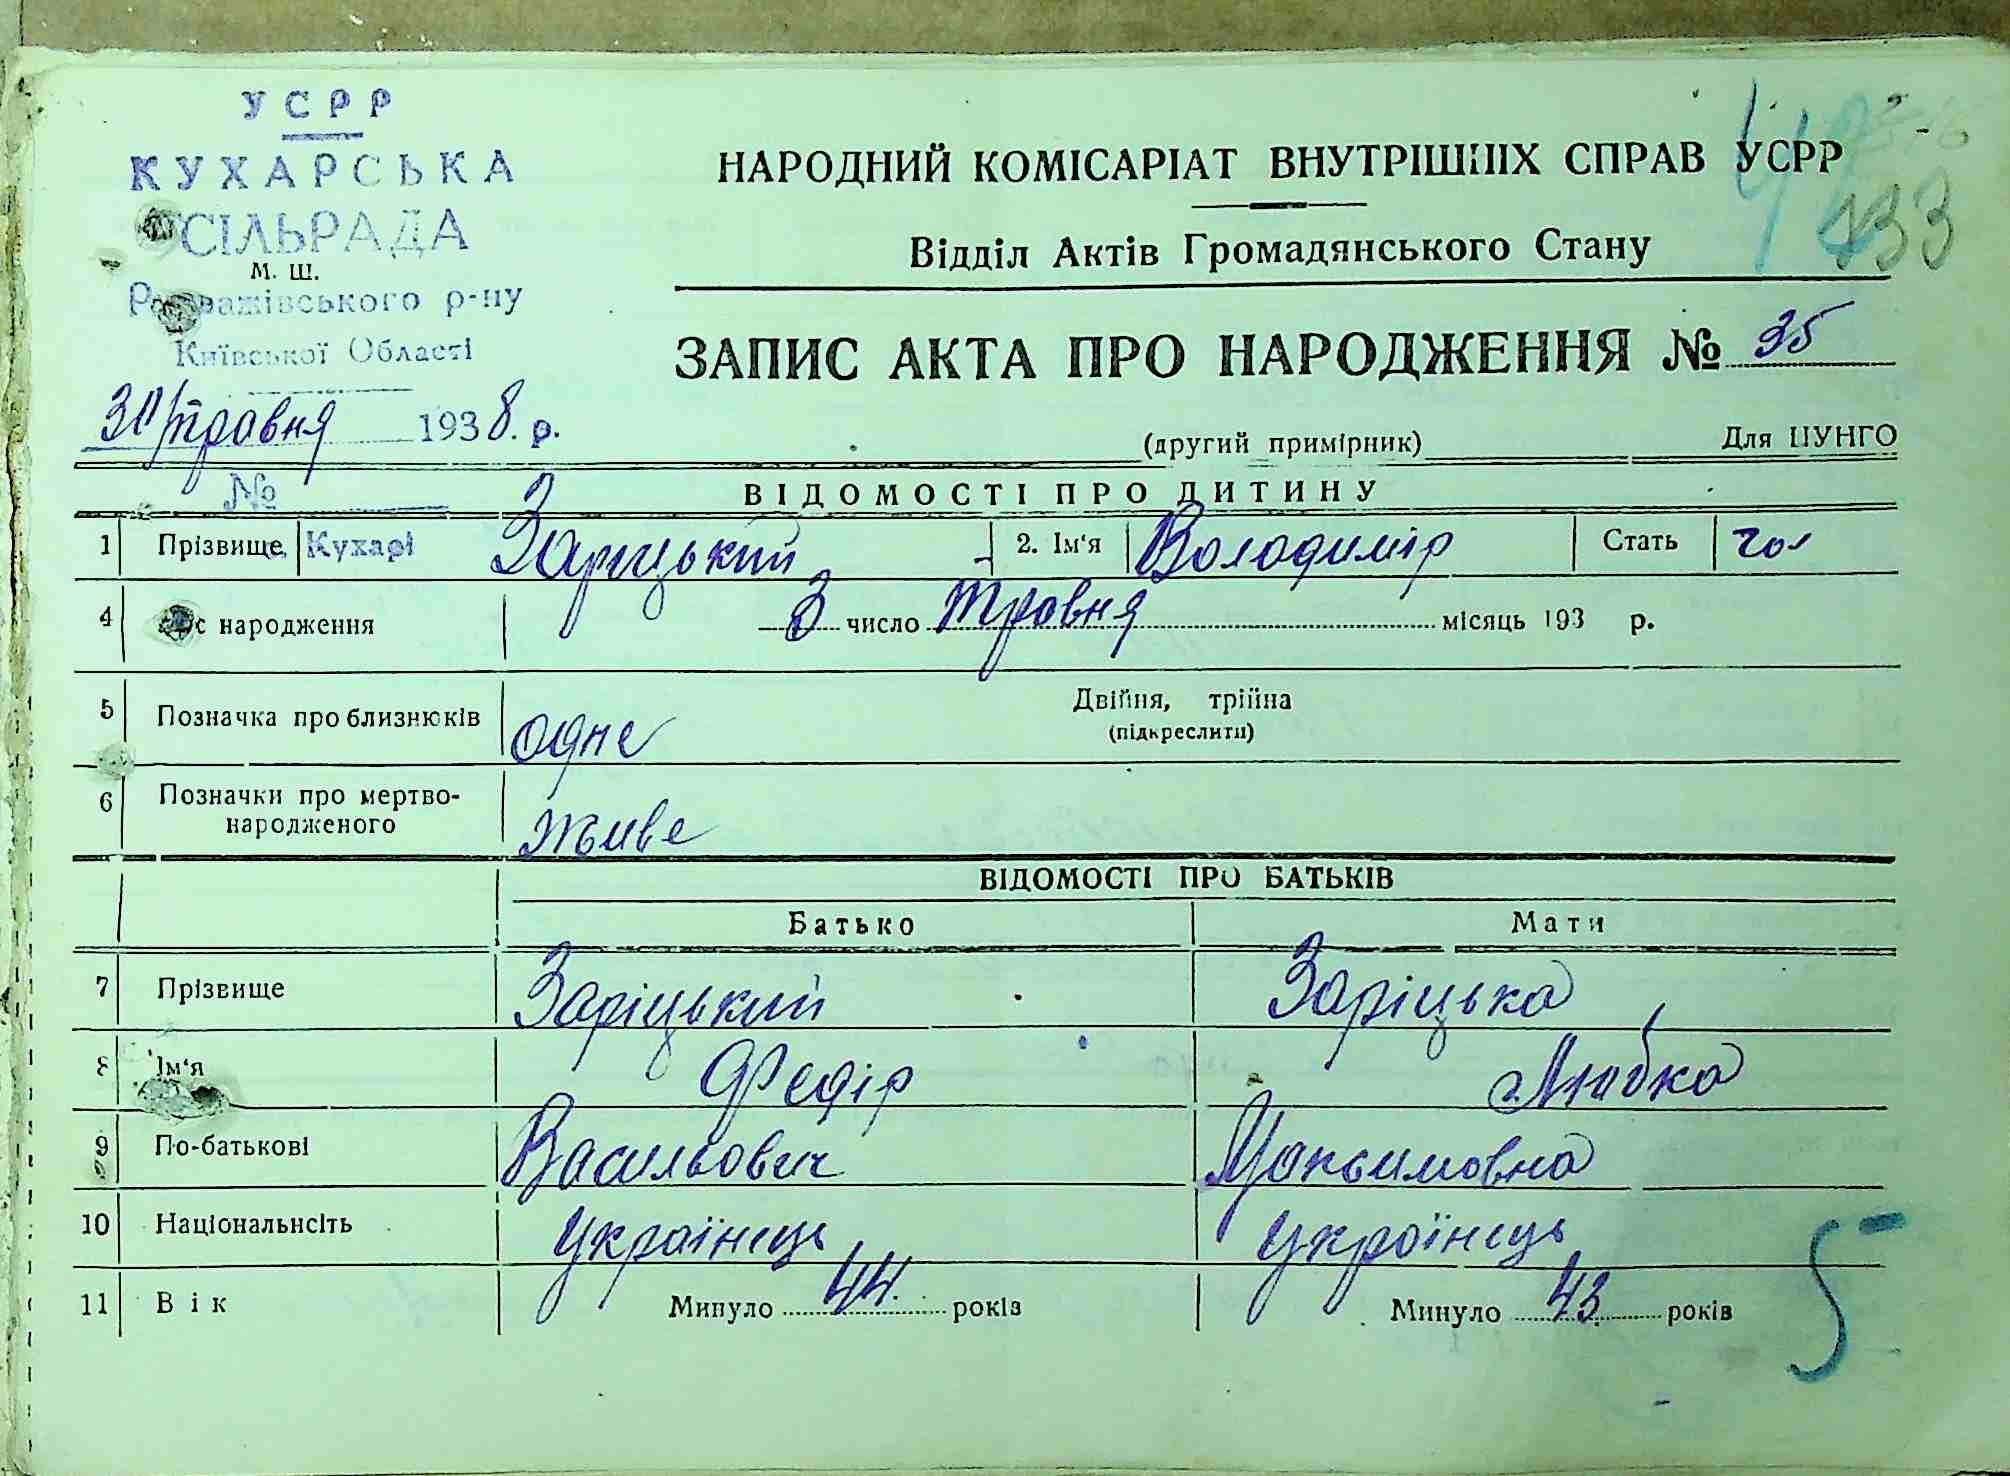 УСРР
КУХАРСЬКА
СІЛЬРАДА
М. Ш.
Розважівського р-ну
Київської Області
30/травня 1938. р.
№
НАРОДНИЙ КОМІСАРІАТ ВНУТРІШНІХ СПРАВ УСРР
133
Відділ Актів Громадянського Стану
ЗАПИС АКТА ПРО НАРОДЖЕННЯ № 35
(другий примірник) Для ЦУНГО
ВІДОМОСТІ ПРО ДИТИНУ
1 Прізвище Кухарі Заріцький 2. Ім'я Володимір Стать чол
4 Час народження 3 число травня місяць 193 р.
5 Позначка про близнюків одне Двійня, трійна
(підкреслити)
6 Позначки про мертво-
народженого живе
ВІДОМОСТІ ПРО БАТЬКІВ
Батько Мати
7 Прізвище Заріцький Заріцька
8 Ім'я Федір Любка
9 По-батькові Васильович Максимовна
10 Національність Українець Українець
11 Вік Минуло 44 років Минуло 43 років
5